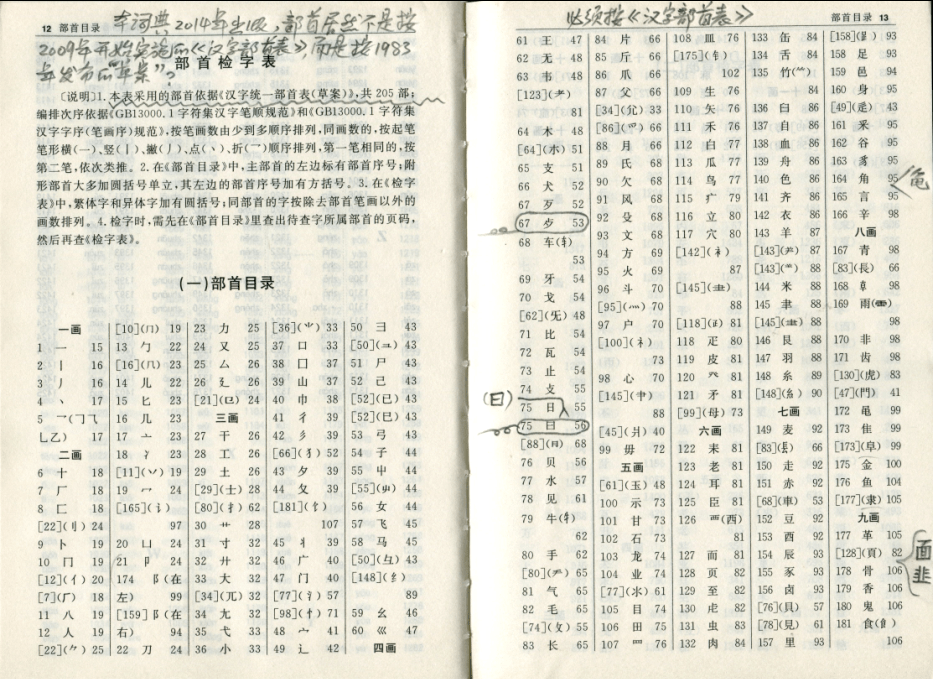 12 部首目录
本词典2014年出版,部首居然不是按
2009年开始实施的《汉字部首表》而是按1983
年发布的"草案"?
部首检字表
〔说明〕1.本表采用的部首依据《汉字统一部首表(草案)》,共205部;
编排次序依据《GB13000.1字符集汉字笔顺规范》和《GB13000.1字符集
汉字字序(笔画序)规范》,按笔画数由少到多顺序排列,同画数的,按起笔
笔形横(一)、竖(丨)、撇(丿)、点(丶)、折(乛)顺序排列,第一笔相同的,按
第二笔,依次类推。2.在《部首目录》中,主部首的左边标有部首序号;附
形部首大多加圆括号单立,其左边的部首序号加有方括号。3.在《检字
表》中,繁体字和异体字加有圆括号;同部首的字按除去部首笔画以外的
画数排列。4.检字时,需先在《部首目录》里查出待查字所属部首的页码,
然后再查《检字表》。
(一)部首目录
一画
1 一 15
2 丨 16
3 丿 16
4 丶 17
5 乛(𠃌乁
乚乙) 17
二画
6 十 18
7 厂 18
8 匚 18
[22](刂) 24
9 卜 19
10 冂 19
[12](亻) 20
[7](⺁) 18
11 八 19
12 人 19
[22](⺈) 25
[10](⺆) 19
13 勹 22
[16](𠘨) 23
14 儿 22
15 匕 23
16 几 23
17 亠 23
18 冫 23
[11](丷) 19
19 冖 24
[165](讠)
97
20 凵 24
21 卩 24
174 阝(在
左) 99
[159]阝(在
右) 94
22 刀 24
23 力 25
24 又 25
25 厶 26
26 廴 26
[21](㔾) 24
三画
27 干 26
28 工 26
29 土 26
[29](士) 28
[80](扌) 62
30 艹 28
31 寸 32
32 廾 32
33 大 32
[34](兀) 32
34 尢 32
35 弋 33
36 小 33
[36](⺌) 33
37 口 33
38 囗 37
39 山 37
40 巾 38
41 彳 39
42 彡 39
[66](犭) 52
43 夕 39
44 夂 39
[181](饣)
107
45 丬 39
46 广 40
47 门 40
[77](氵) 57
[98](忄) 71
48 宀 41
49 辶 42
50 彐 43
[50](⺕) 43
51 尸 43
52 己 43
[52](已) 43
[52](巳) 43
53 弓 43
54 子 44
55 屮 44
[55] 44
56 女 44
57 飞 45
58 马 45
[50](彑) 43
[148](纟)
89
59 幺 46
60 巛 47
四画
必须按《汉字部首表》
部首目录 13
61 王 47
62 无 48
63 韦 48
[123](耂)
81
64 木 48
[64](朩) 51
65 支 51
66 犬 52
67 歹 52
67 歺 53
68 车(车)
53
69 牙 54
70 戈 54
[62](旡) 48
71 比 54
72 瓦 54
73 止 54
74 攴 55
(曰)
75 日 55
75 曰 56
[88](⺝) 68
76 贝 56
77 水 57
78 见 61
79 牛(牜)
62
80 手 62
[80](龵) 65
81 气 65
82 毛 65
[74](攵) 55
83 长 65
84 片 66
85 斤 66
86 爪 66
87 父 66
[34](尣) 33
[86](爫) 66
88 月 66
89 氏 68
90 欠 68
91 风 68
92 殳 68
93 文 68
94 方 69
95 火 69
96 斗 70
[95](灬) 70
97 户 70
[100](礻)
73
98 心 70
[145](肀)
88
[45](爿) 40
99 毋 72
五画
[61](玉) 48
100 示 73
101 甘 73
102 石 73
103 龙 74
104 业 74
[77](氺) 61
105 目 74
106 田 75
107 罒 76
108 皿 76
[175](钅)
102
109 生 76
110 矢 76
111 禾 76
112 白 77
113 瓜 77
114 鸟 77
115 疒 79
116 立 80
117 穴 80
[142](衤)
87
[145]
88
[118](𤴔) 81
118 疋 80
119 皮 81
120 癶 81
121 矛 81
[99](母) 73
六画
122 耒 81
123 老 81
124 耳 81
125 臣 81
126 覀(西)
81
127 而 81
128 页 82
129 至 82
130 虍 82
131 虫 83
132 肉 84
133 缶 84
134 舌 84
135 竹(⺮)
84
136 臼 86
137 自 86
138 血 86
139 舟 86
140 色 86
141 齐 86
142 衣 86
143 羊 87
[143](⺶) 87
[143](⺷) 88
144 米 88
145 聿 88
[145] 88
146 艮 88
147 羽 88
148 糸 89
[148](糹) 90
七画
149 麦 92
[83](镸) 66
150 走 92
151 赤 92
[68](車) 53
152 豆 92
153 酉 92
154 辰 93
155 豕 93
156 卤 93
[76](貝) 57
[78](見) 61
157 里 93
[158] 93
158 足 93
159 邑 94
160 身 95
[49](辵) 43
161 釆 95
162 谷 95
163 豸 95
164 角 95
165 言 95
166 辛 98
八画
167 青 98
[83](長) 66
168 98
169 雨(⻗)
98
170 非 98
171 齿 98
[130](虎) 83
[47](門) 41
172 黾 99
173 隹 99
[173](阜) 99
175 金 100
176 鱼 104
[177](隶) 105
九画
177 革 105
[128](頁) 82
178 骨 106
179 香 106
180 鬼 106
181 食(飠)
106
龟
面
韭